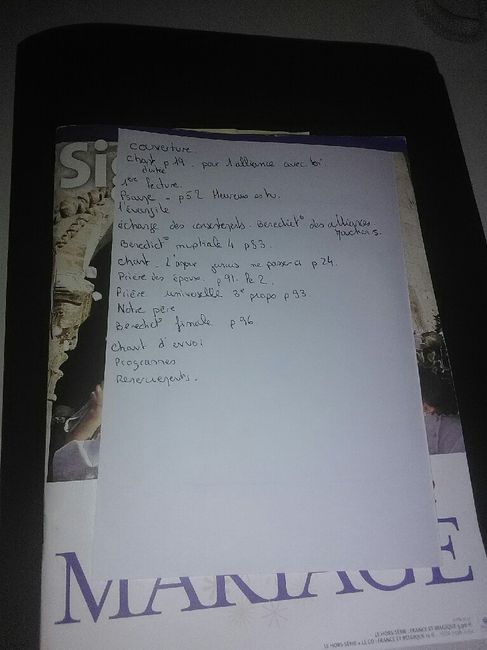 Si
couverture.
Chant p 19. par l'alliance avec toi
d'entrée
1ère lecture.
Psaume - p52 Heureux es tu.
l'évangile
échange des consentements. Benedict° des alliances
Benedict° nuptiale 4 p83.
Chant L'amour jamais ne passera p 24.
Prière des époux. p 91. N° 2.
Prière universelle 3e propo p 93.
Notre père
Benedict° finale p 96.
Chant d'envoi
Programmes
Remerciements.
MARIAGE
LE HORS-SÉRIE : FRANCE ET BELGIQUE
LE HORS-SÉRIE + LE CD : FRANCE ET BELGIQUE